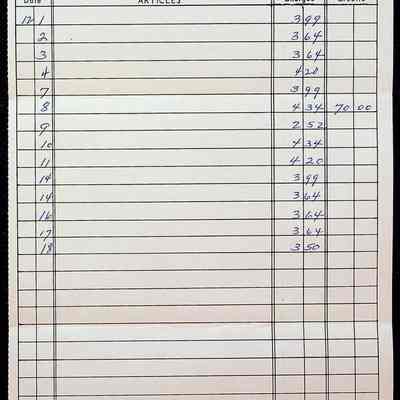 Date ARTICLES Charges Credits
12 1 3 99
2 3 64
3 3 64
4 4 20
7 3 99
8 4 34 70 00
9 2 52
10 4 34
11 4 20
14 3 99
14 3 64
16 3 64
17 3 64
18 3 50